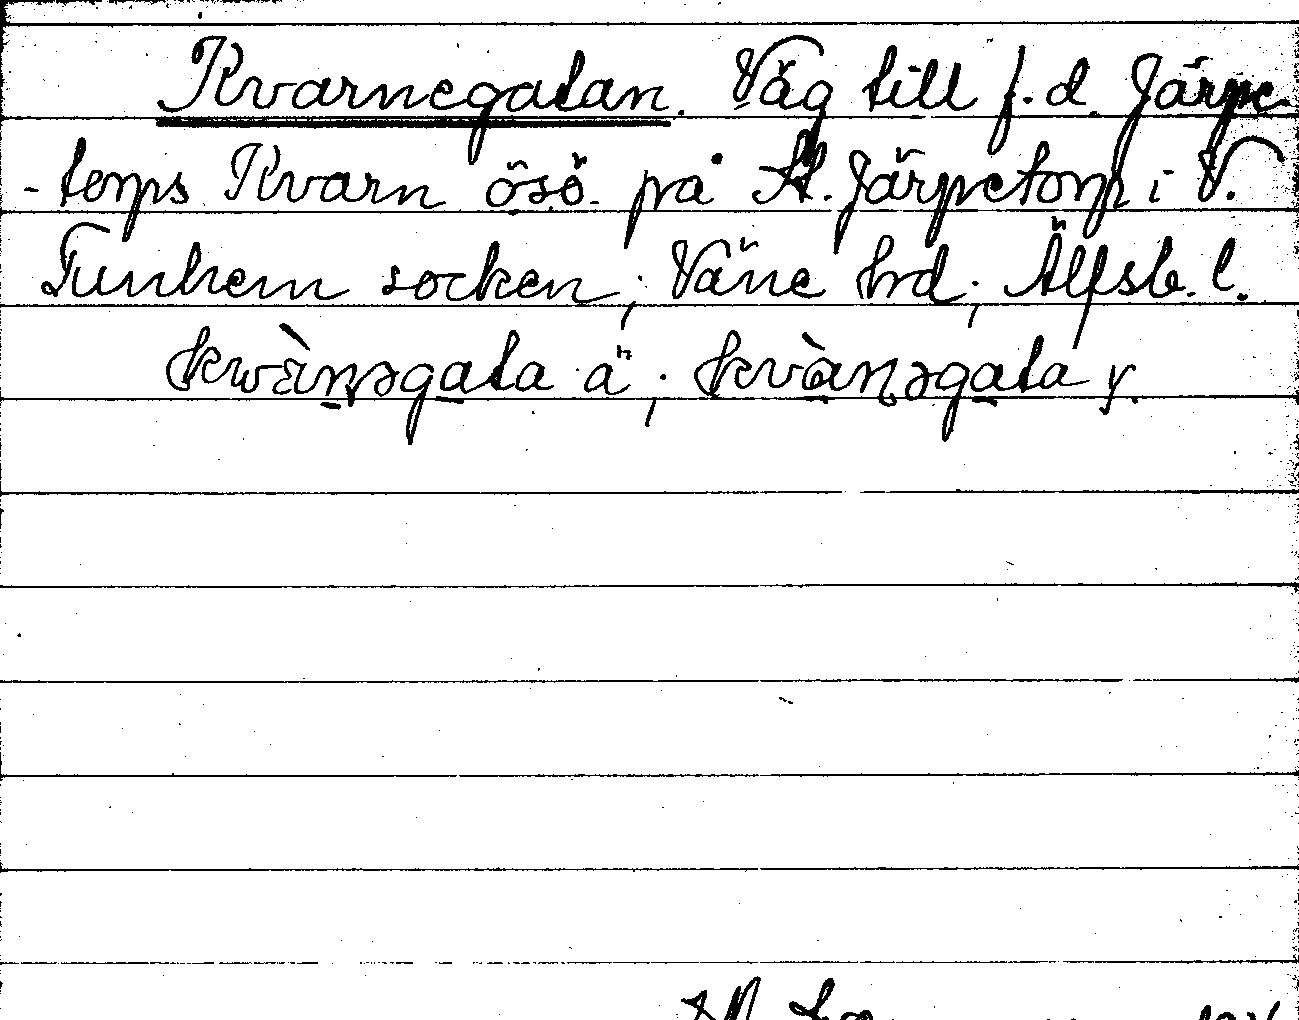 Kvarnegatan. Väg till f.d. Järpe-
-torps Kvarn ösö. på St. Järpetorp i V.
Tunhem socken; Väne hrd; Älfsb. l.
kwànəgata ä; kvànəgata y.